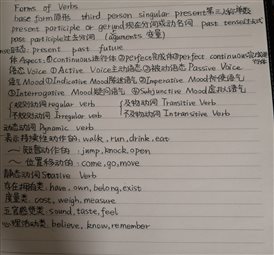 Forms of Verbs
base form原形 third person singular present第三人称单数
present participle or gerund现在分词或动名词 past tense过去式
past participle过去分词 (arguments 变量)
时态: present past future
体 Aspect: ①continuous进行体 ②perfect完成体 ③perfect continuous完成进行体
语态 Voice: ①Active Voice主动语态 ②被动语态 Passive Voice
语气 Mood: ①Indicative Mood陈述语气 ②Imperative Mood祈使语气
③Interrogative Mood疑问语气 ④Subjunctive Mood虚拟语气
规则动词 regular verb 及物动词 Transitive Verb
不规则动词 Irregular verb 不及物动词 Intransitive Verb
动态动词 Dynamic verb
表示持续性动作的: walk, run, drink, eat
~ 短暂动作的: jump, knock, open
~ 位置移动的: come, go, move
静态动词 Stative Verb
存在拥有类: have, own, belong, exist
度量类: cost, weigh, measure
五官感觉类: sound, taste, feel
心理活动类: believe, know, remember